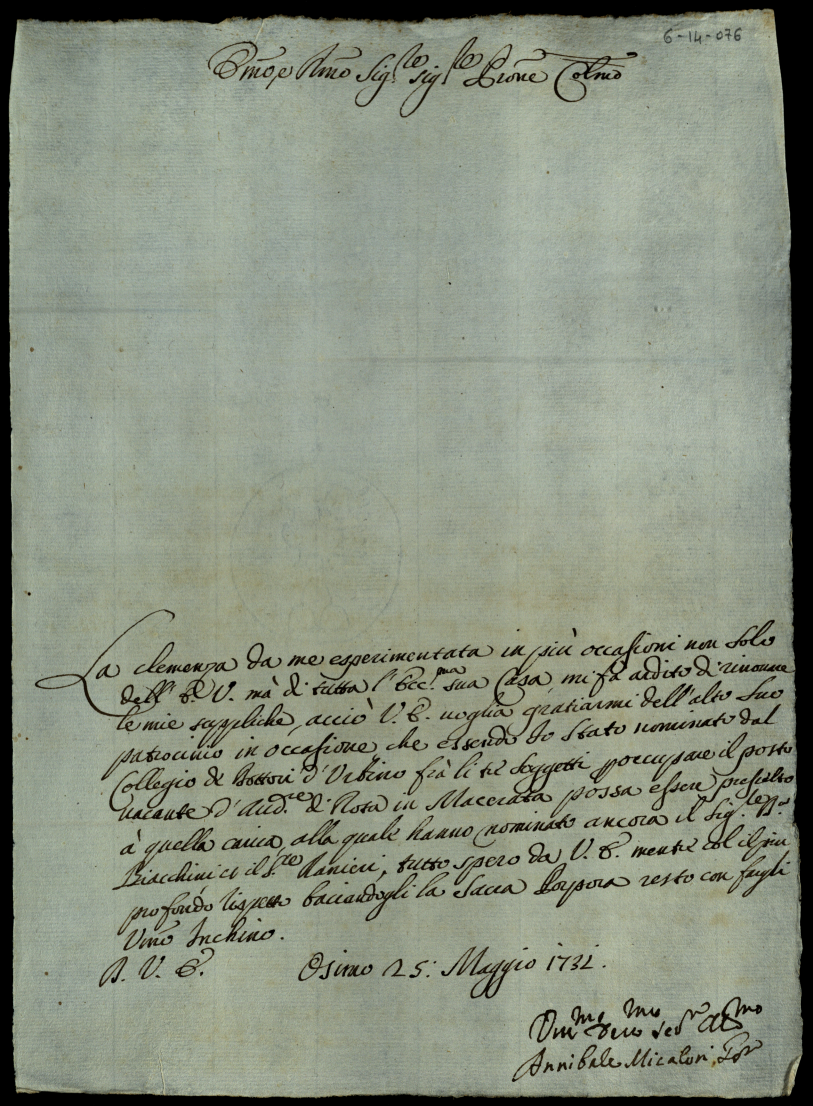 6-14-076
Emo, e Rmo Sig.re Sig.re Prone Colmo
La clemenza da me esperimentata in più occasioni non solo
dell' E. V. mà di tutta l' Ecc.ma sua Casa, mi fà ardito di rinovare
le mie suppliche, acciò V. E. voglia gratiarmi dell' alto suo
patrocinio in occasione che essendo Io stato nominato dal
Collegio de Dottori d'Urbino frà li trè soggetti p occupare il posto
vacante d'Aud.re di Rota in Macerata possa esser prescielto
à quella carica, alla quale hanno nominato ancora il Sig.
Biacchini et il S.re Ranieri, tutto spero da V. E. mentre col il più
profondo rispetto baciandogli la Sacra Porpora resto con fargli
Umo Inchino.
D. V. E. Osimo 25: Maggio 1731.
Um.mo Dev.mo Ser.r
Annibale Micaloni